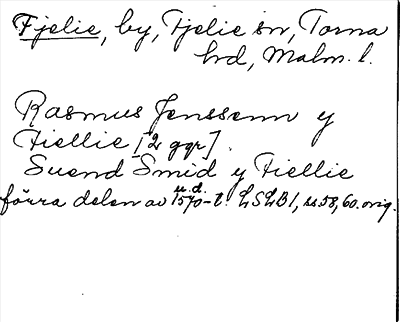 Fjelie, by, Fjelie sn, Torna
hd, Malm. l.
Rasmus Jenssenn y
Fiellie [2 ggr].
Suend Smid y Fiellie
u.d.
förra delen av 1570-t. LSLB 1, ss. 58, 60. orig.